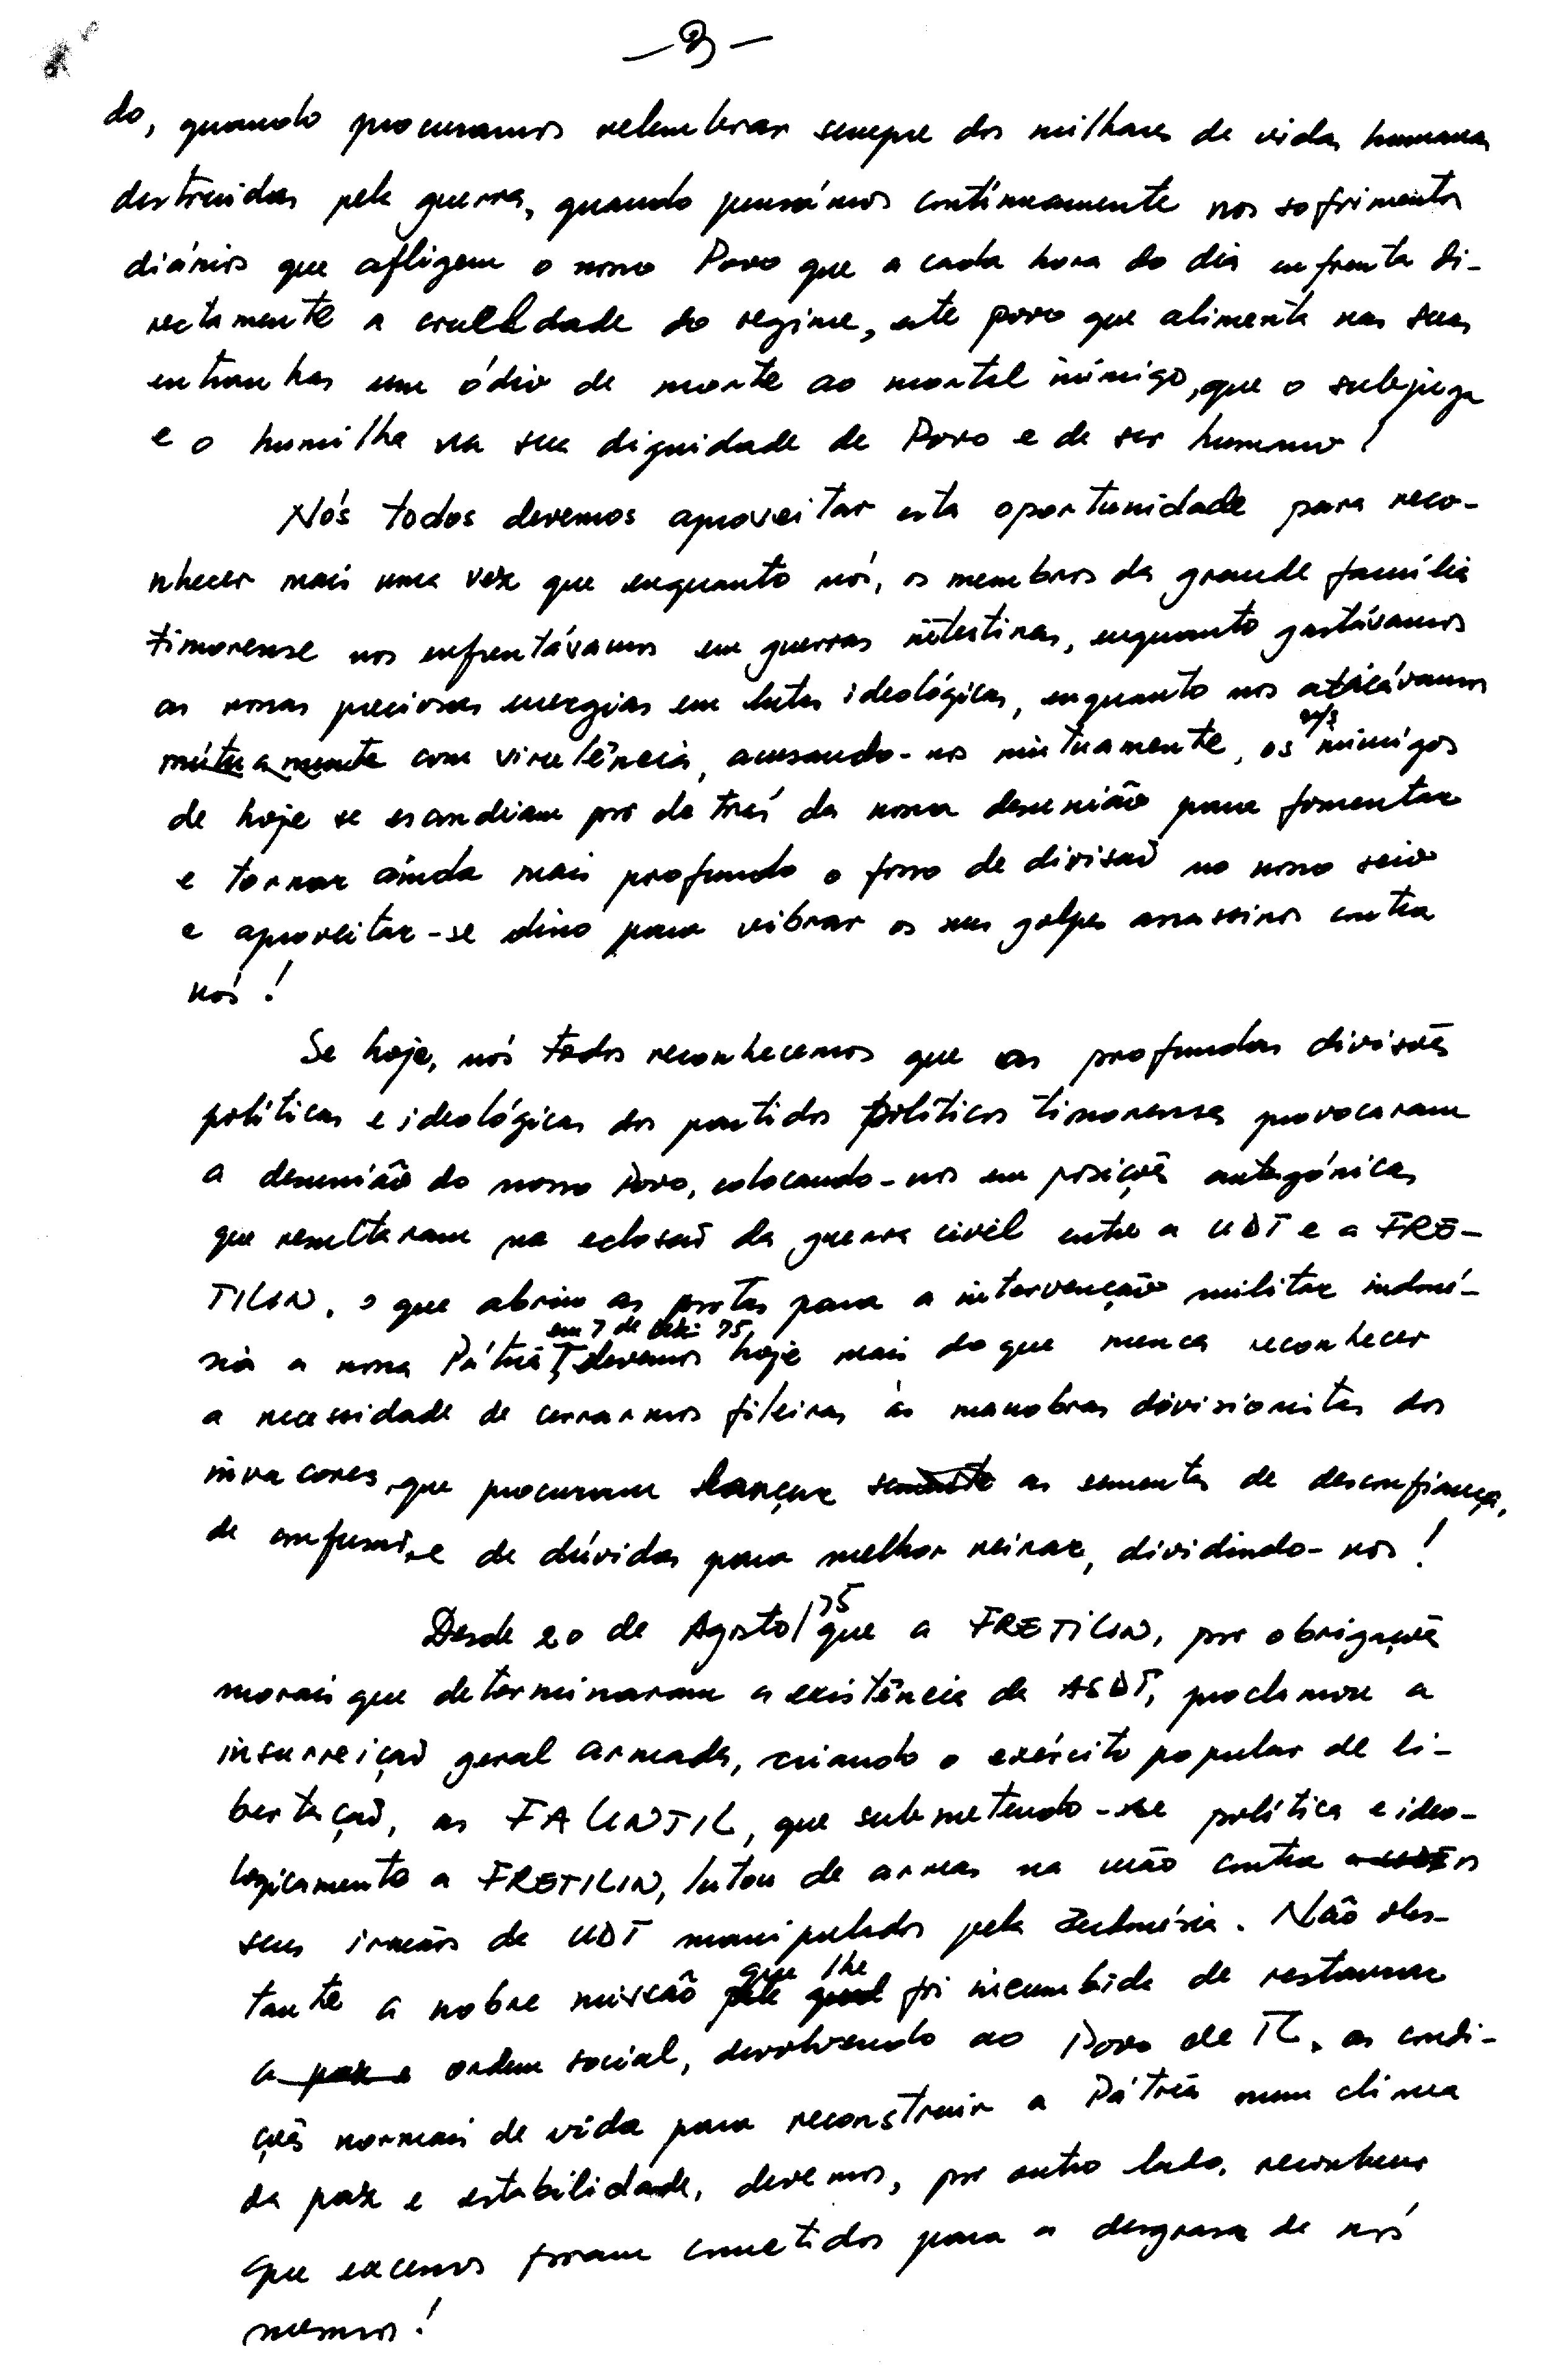 — 3 —
do, quando procuramos relembrar sempre dos milhares de vidas humanas
destruidas pela guerra, quando pensámos continuamente nos sofrimentos
diários que afligem o nosso Povo que a cada hora do dia enfrenta di-
rectamente a crueldade do regime, este povo que alimenta nas suas
entranhas um ódio de morte ao mortal inimigo, que o subjuga
e o humilha na sua dignidade de Povo e de ser humano!
Nós todos devemos aproveitar esta oportunidade para reco-
nhecer mais uma vez que enquanto nós, os membros da grande família
timorense nos enfrentávamos em guerras intestinas, enquanto gastávamos
as nossas preciosas energias em lutas ideológicas, enquanto nos atacávamos
mútuamente com virulência, acusando-nos mùtuamente, os ns/s inimigos
de hoje se escondiam por de trás da nossa desunião para fomentar
e tornar ainda mais profundo o fosso de divisão no nosso seio
e aproveitar-se disso para vibrar os seus golpes assassinos contra
nós!
Se hoje, nós todos reconhecemos que as profundas divisões
políticas e ideológicas dos partidos políticos timorenses provocaram
a desunião do nosso Povo, colocando-nos em posições antagónicas
que resultaram na eclosão da guerra civil entre a UDT e a FRE-
TILIN, o que abriu as portas para a intervenção militar indoné-
sia a nossa Pátria em 7 de Dez. 75, devemos hoje mais do que nunca reconhecer
a necessidade de cerrarmos fileiras às manobras divisionistas dos
invasores, que procuram lançar semente as sementes de desconfiança,
de confusão, e de dúvidas para melhor reinar, dividindo-nos!
Desde 20 de Agosto/75 que a FRETILIN, por obrigações
morais que determinaram a existência da ASDT, proclamou a
insurreição geral armada, criando o exército popular de li-
bertação, as FALINTIL, que submetendo-se política e ideo-
logicamente a FRETILIN, lutou de armas na mão contra a UDT os
seus irmãos da UDT manipulados pela Indonésia. Não obs-
tante a nobre missão pela qual que lhe foi incumbida de restaurar
a paz e ordem social, devolvendo ao Povo de TL, as condi-
ções normais de vida para reconstruir a Pátria num clima
da paz e estabilidade, devemos, por outro lado, reconhecer
que excessos foram cometidos para a desgrasa de nós
mesmos!